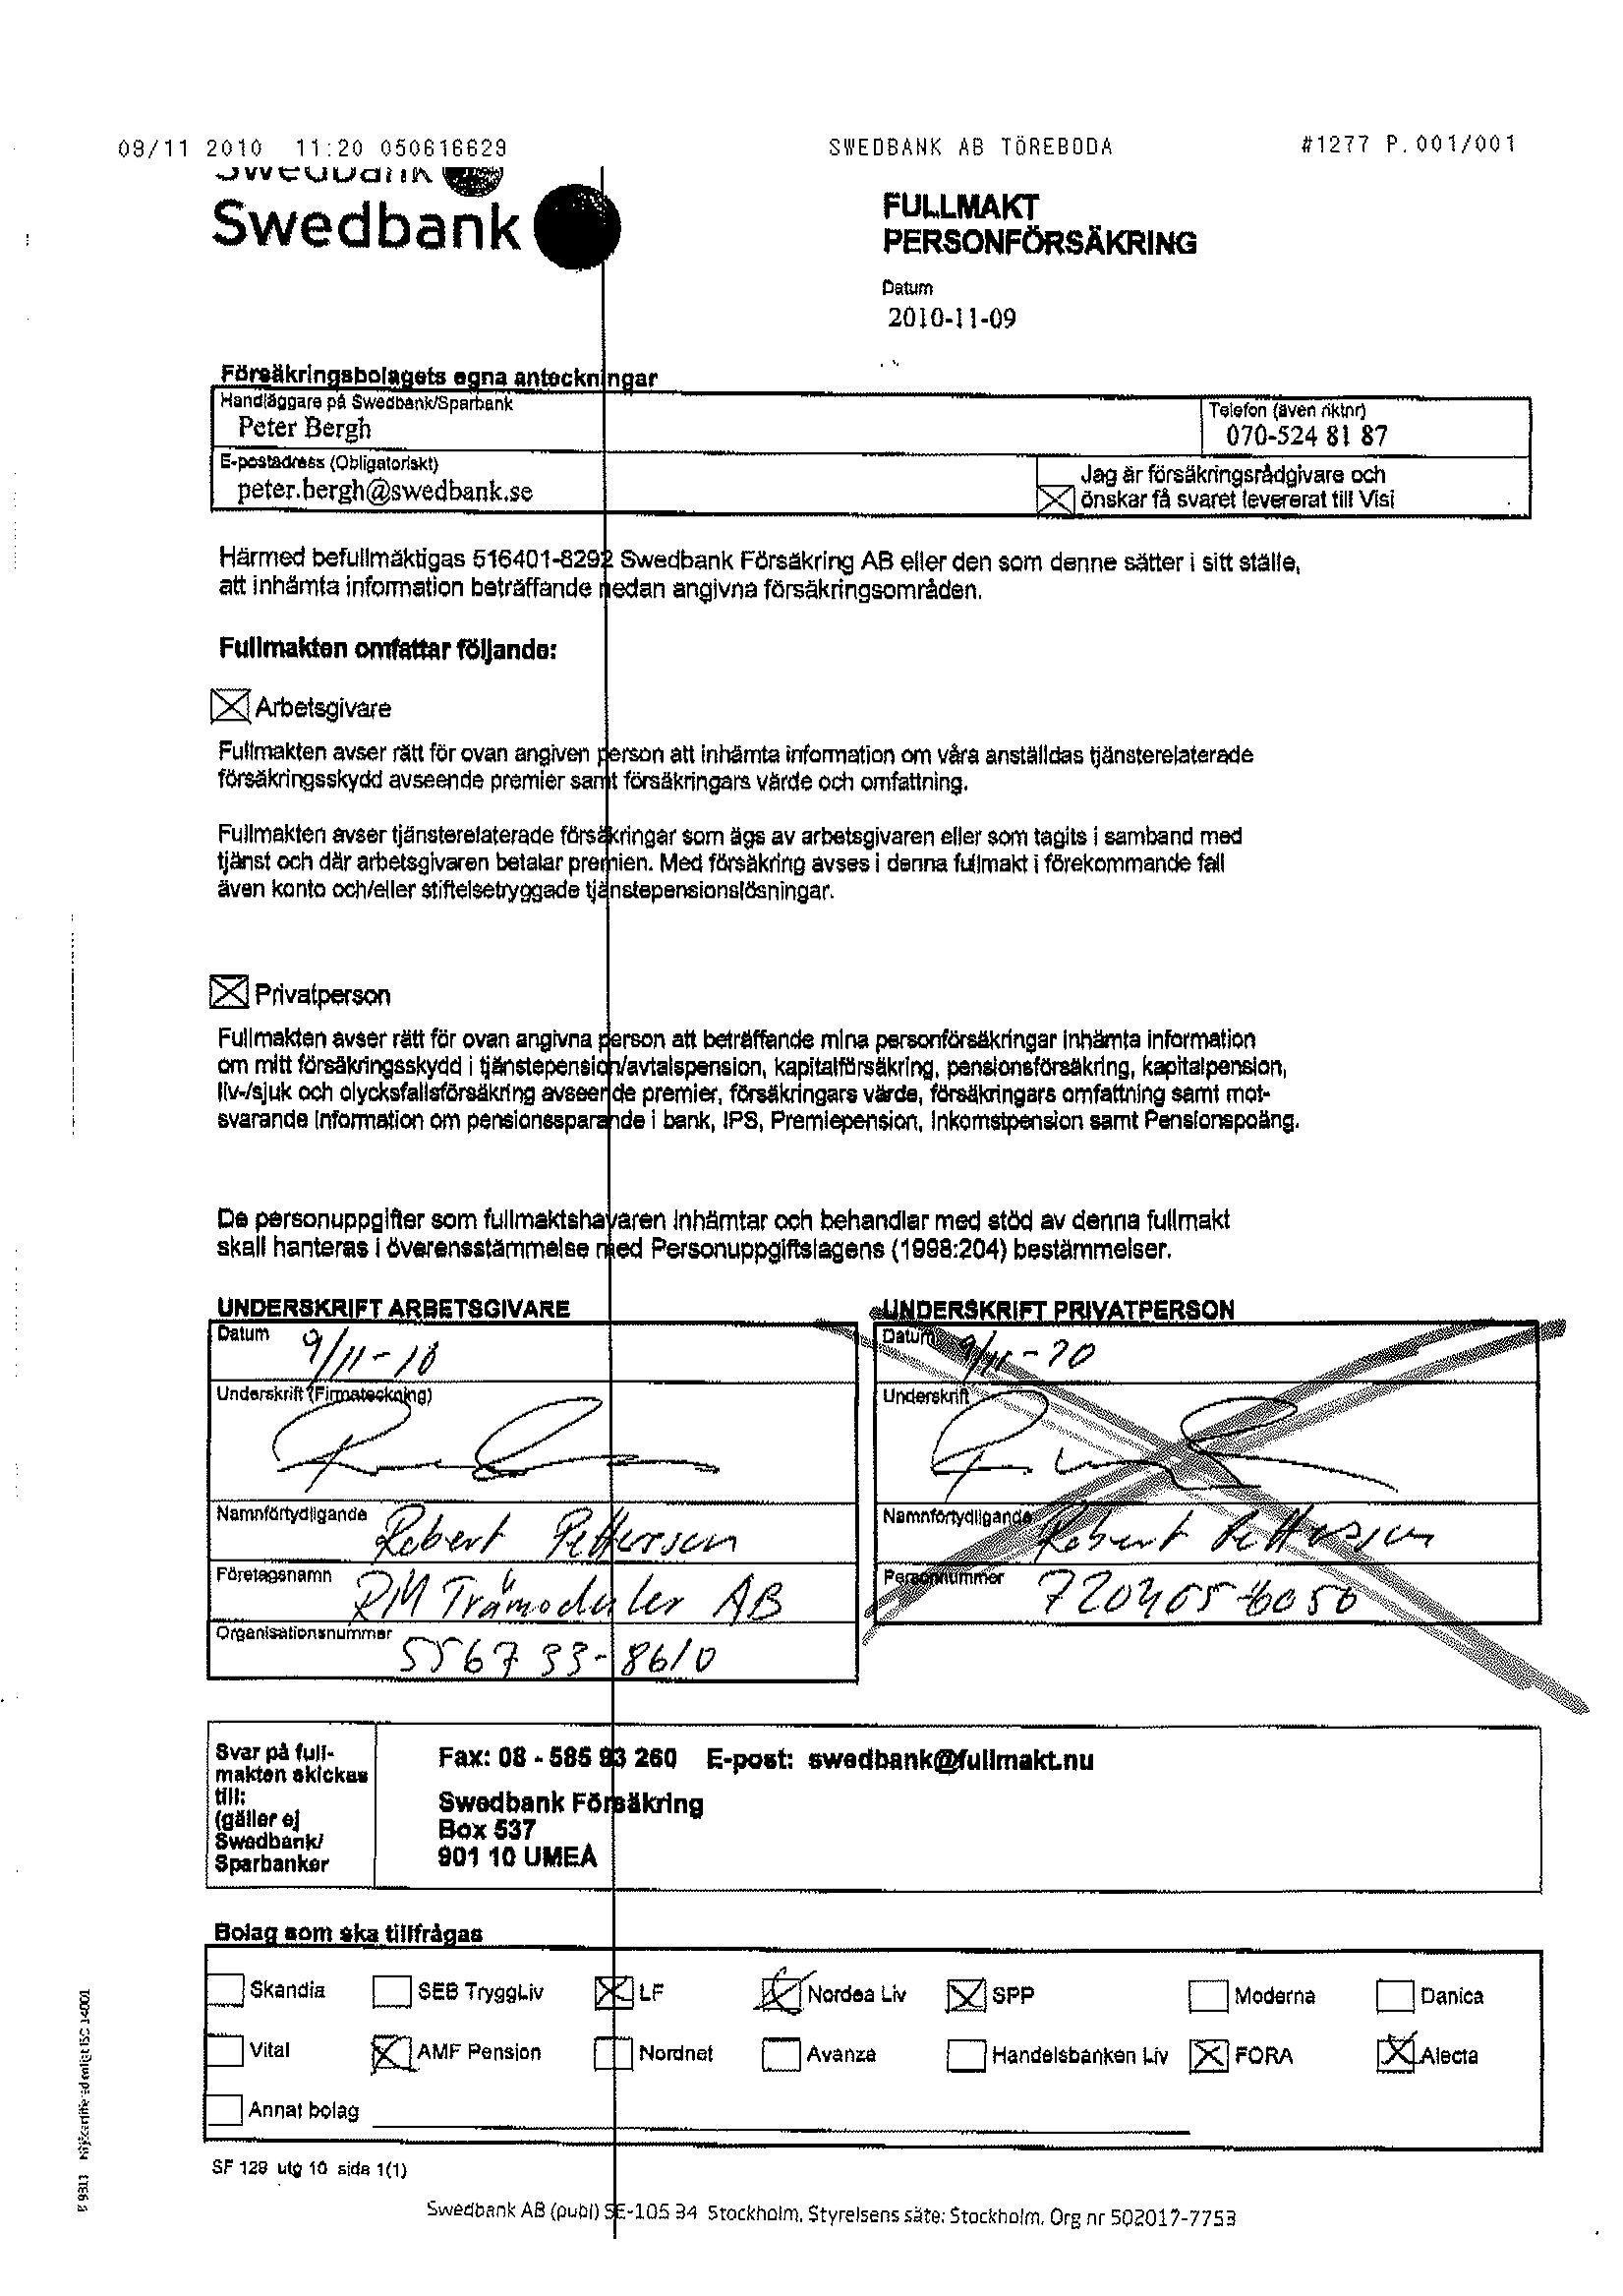 09/11 2010 11:20 050616629 SWEDBANK AB TÖREBODA #1277 P.001/001
Swedbank
Swedbank
FULLMAKT
PERSONFÖRSÄKRING
Datum
2010-11-09
Försäkringsbolagets egna anteckningar
Handläggare på Swedbank/Sparbank
Peter Bergh
Telefon (även riktnr)
070-524 81 87
E-postadress (Obligatoriskt)
peter.bergh@swedbank.se
Jag är försäkringsrådgivare och
önskar få svaret levererat till Visi
Härmed befullmäktigas 516401-8292 Swedbank Försäkring AB eller den som denne sätter i sitt ställe,
att inhämta information beträffande nedan angivna försäkringsområden.
Fullmakten omfattar följande:
Arbetsgivare
Fullmakten avser rätt för ovan angiven person att inhämta information om våra anställdas tjänsterelaterade
försäkringsskydd avseende premier samt försäkringars värde och omfattning.
Fullmakten avser tjänsterelaterade försäkringar som ägs av arbetsgivaren eller som tagits i samband med
tjänst och där arbetsgivaren betalar premien. Med försäkring avses i denna fullmakt i förekommande fall
även konto och/eller stiftelsetryggade tjänstepensionslösningar.
Privatperson
Fullmakten avser rätt för ovan angivna person att beträffande mina personförsäkringar inhämta information
om mitt försäkringsskydd i tjänstepension/avtalspension, kapitalförsäkring, pensionsförsäkring, kapitalpension,
liv-/sjuk och olycksfallsförsäkring avseende premier, försäkringars värde, försäkringars omfattning samt mot-
svarande information om pensionssparande i bank, IPS, Premiepension, Inkomstpension samt Pensionspoäng.
De personuppgifter som fullmaktshavaren inhämtar och behandlar med stöd av denna fullmakt
skall hanteras i överensstämmelse med Personuppgiftslagens (1998:204) bestämmelser.
UNDERSKRIFT ARBETSGIVARE
Datum 9/11-10
Underskrift (Firmateckning)
Namnförtydligande Robert Pettersson
Företagsnamn RM Trämoduler AB
Organisationsnummer 556733-8610
UNDERSKRIFT PRIVATPERSON
Datum 9/11-10
Underskrift
Namnförtydligande Robert Pettersson
Personnummer 720405-6050
Svar på full-
makten skickas
till:
(gäller ej
Swedbank/
Sparbanker
Fax: 08 - 585 93 260 E-post: swedbank@fullmakt.nu
Swedbank Försäkring
Box 537
901 10 UMEÅ
Bolag som ska tillfrågas
Skandia SEB TryggLiv LF Nordea Liv SPP Moderna Danica
Vital AMF Pension Nordnet Avanza Handelsbanken Liv FORA Alecta
Annat bolag
SF 128 utg 10 sida 1(1)
Swedbank AB (publ) SE-105 34 Stockholm, Styrelsens säte: Stockholm, Org nr 502017-7753